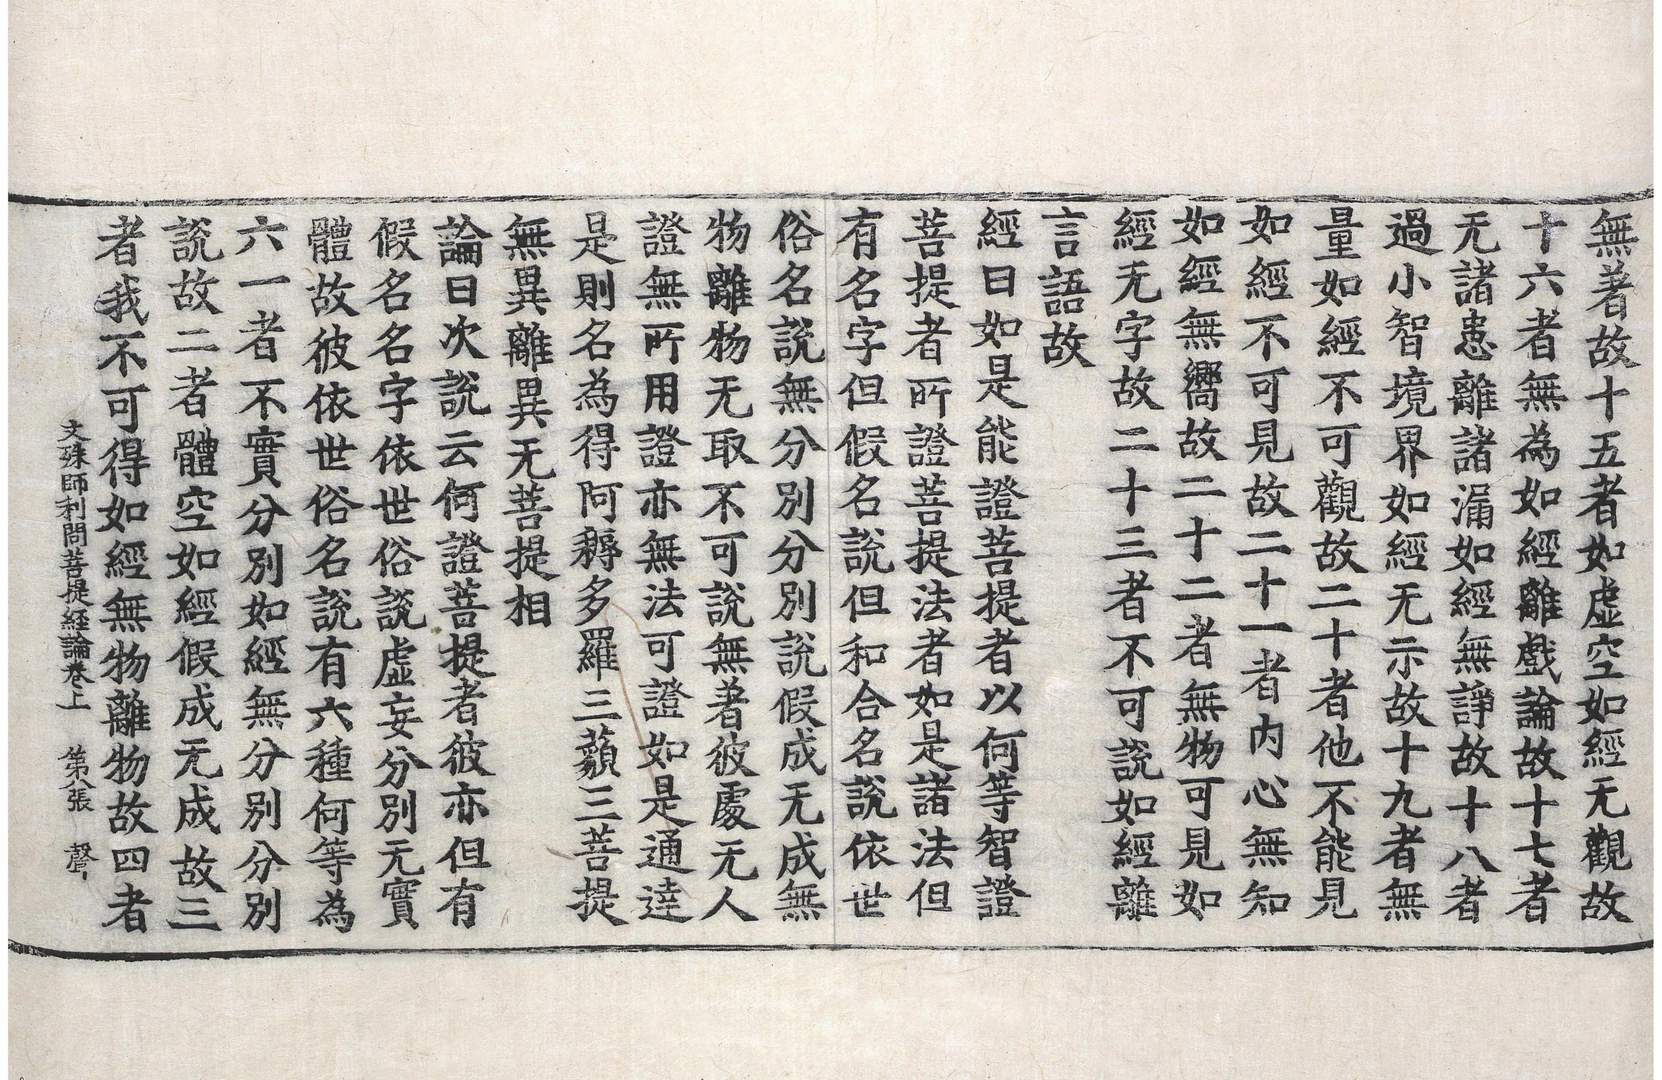 無著故十五者如虛空如經无觀故
十六者無為如經離戲論故十七者
无諸患離諸漏如經無諍故十八者
過小智境界如經无示故十九者無
量如經不可觀故二十者他不能見
如經不可見故二十一者內心無知
如經無嚮故二十二者無物可見如
經无字故二十三者不可說如經離
言語故
經曰如是能證菩提者以何等智證
菩提者所證菩提法者如是諸法但
有名字但假名說但和合名說依世
俗名說無分別分別說假成无成無
物離物无取不可說無著彼處无人
證無所用證亦無法可證如是通達
是則名為得阿耨多羅三藐三菩提
無異離異无菩提相
論曰次說云何證菩提者彼亦但有
假名名字依世俗說虛妄分別无實
體故彼依世俗名說有六種何等為
六一者不實分別如經無分別分別
說故二者體空如經假成无成故三
者我不可得如經無物離物故四者
文殊師利問菩提経論卷上 第八張 聲